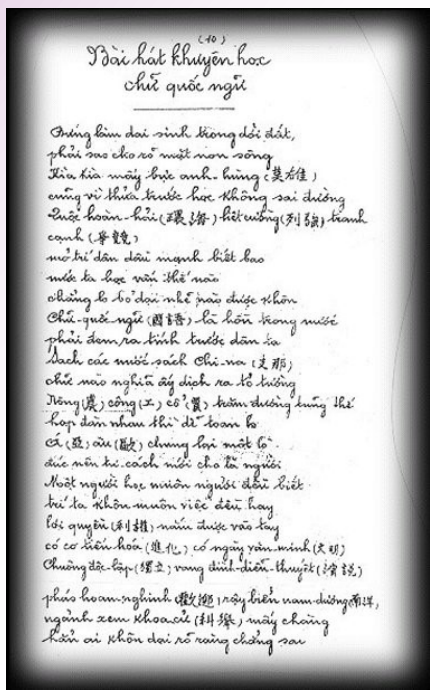 (10)
Bài hát khuyên học
chữ quốc ngữ
Đứng làm dai sinh trong dời đất,
phải sao cho rõ mặt non sông
Kìa kìa mấy bực anh-hùng (英雄)
cũng vì thửa trước học không sai đường
Cuộc hoàn-hải (環海) liệt cường (列強) tranh
cạnh (爭競)
mở trí dân dầu mạnh biết bao
nước ta học vấn thế nào
chẳng lo bỏ dại nhẽ nào được khôn
Chữ-quốc ngữ (國語) là hồn trong nước
phải đem ra tính trước dân ta
Sách các nước sách Chi-na (支那)
chữ nào nghĩa ấy dịch ra tỏ tường
Nông (農) công (工) cổ (賈) trăm đường cũng thế
họp dàn nhau thì dễ toan lo
Á (亞) âu (歐) chung lại một lò
đúc nên tư-cách mới cho là người
Một người học muôn người đều biết
trí ta khôn muôn việc đều hay
lợi quyền (利權) nắm được vào tay
có cơ tiến hóa (進化) có ngày văn-minh (文明)
Chuông độc-lập (獨立) vang đình-diễn-thuyết (演說)
pháo hoan-nghinh (歡迎) rậy biển nam-dương 南洋,
ngảnh xem khoa cử (科舉) mấy chàng
hẳn ai khôn dại rõ ràng chẳng sai